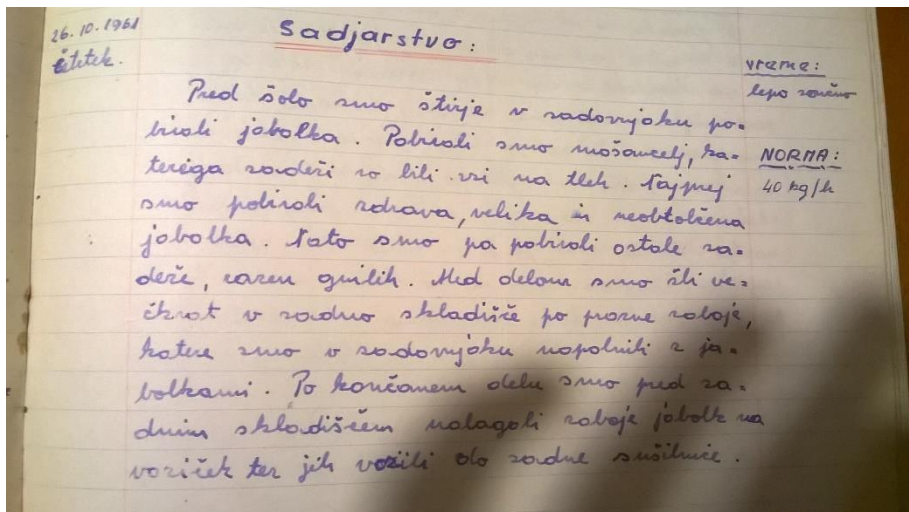 26.10.1961
četetek.
Sadjarstvo:
vreme:
lepo sončno
Pred šolo smo štirje v sadovnjaku po=
birali jabolka. Pobirali smo mošancelj, ka=
terega sadeži so bili vsi na tleh. Najprej
NORMA:
40 kg/h
smo pobirali zdrava, velika in neobtolčena
jabolka. Nato smo pa pobirali ostale sa=
deže, razen gnilih. Med delom smo šli ve=
čkrat v sadno skladišče po prazne zaboje,
katere smo v sadovnjaku napolnili z ja=
bolkami. Po končanem delu smo pred sa=
dnim skladiščem nalagali zaboje jabolk na
voziček ter jih vozili do sadne sušilnice.